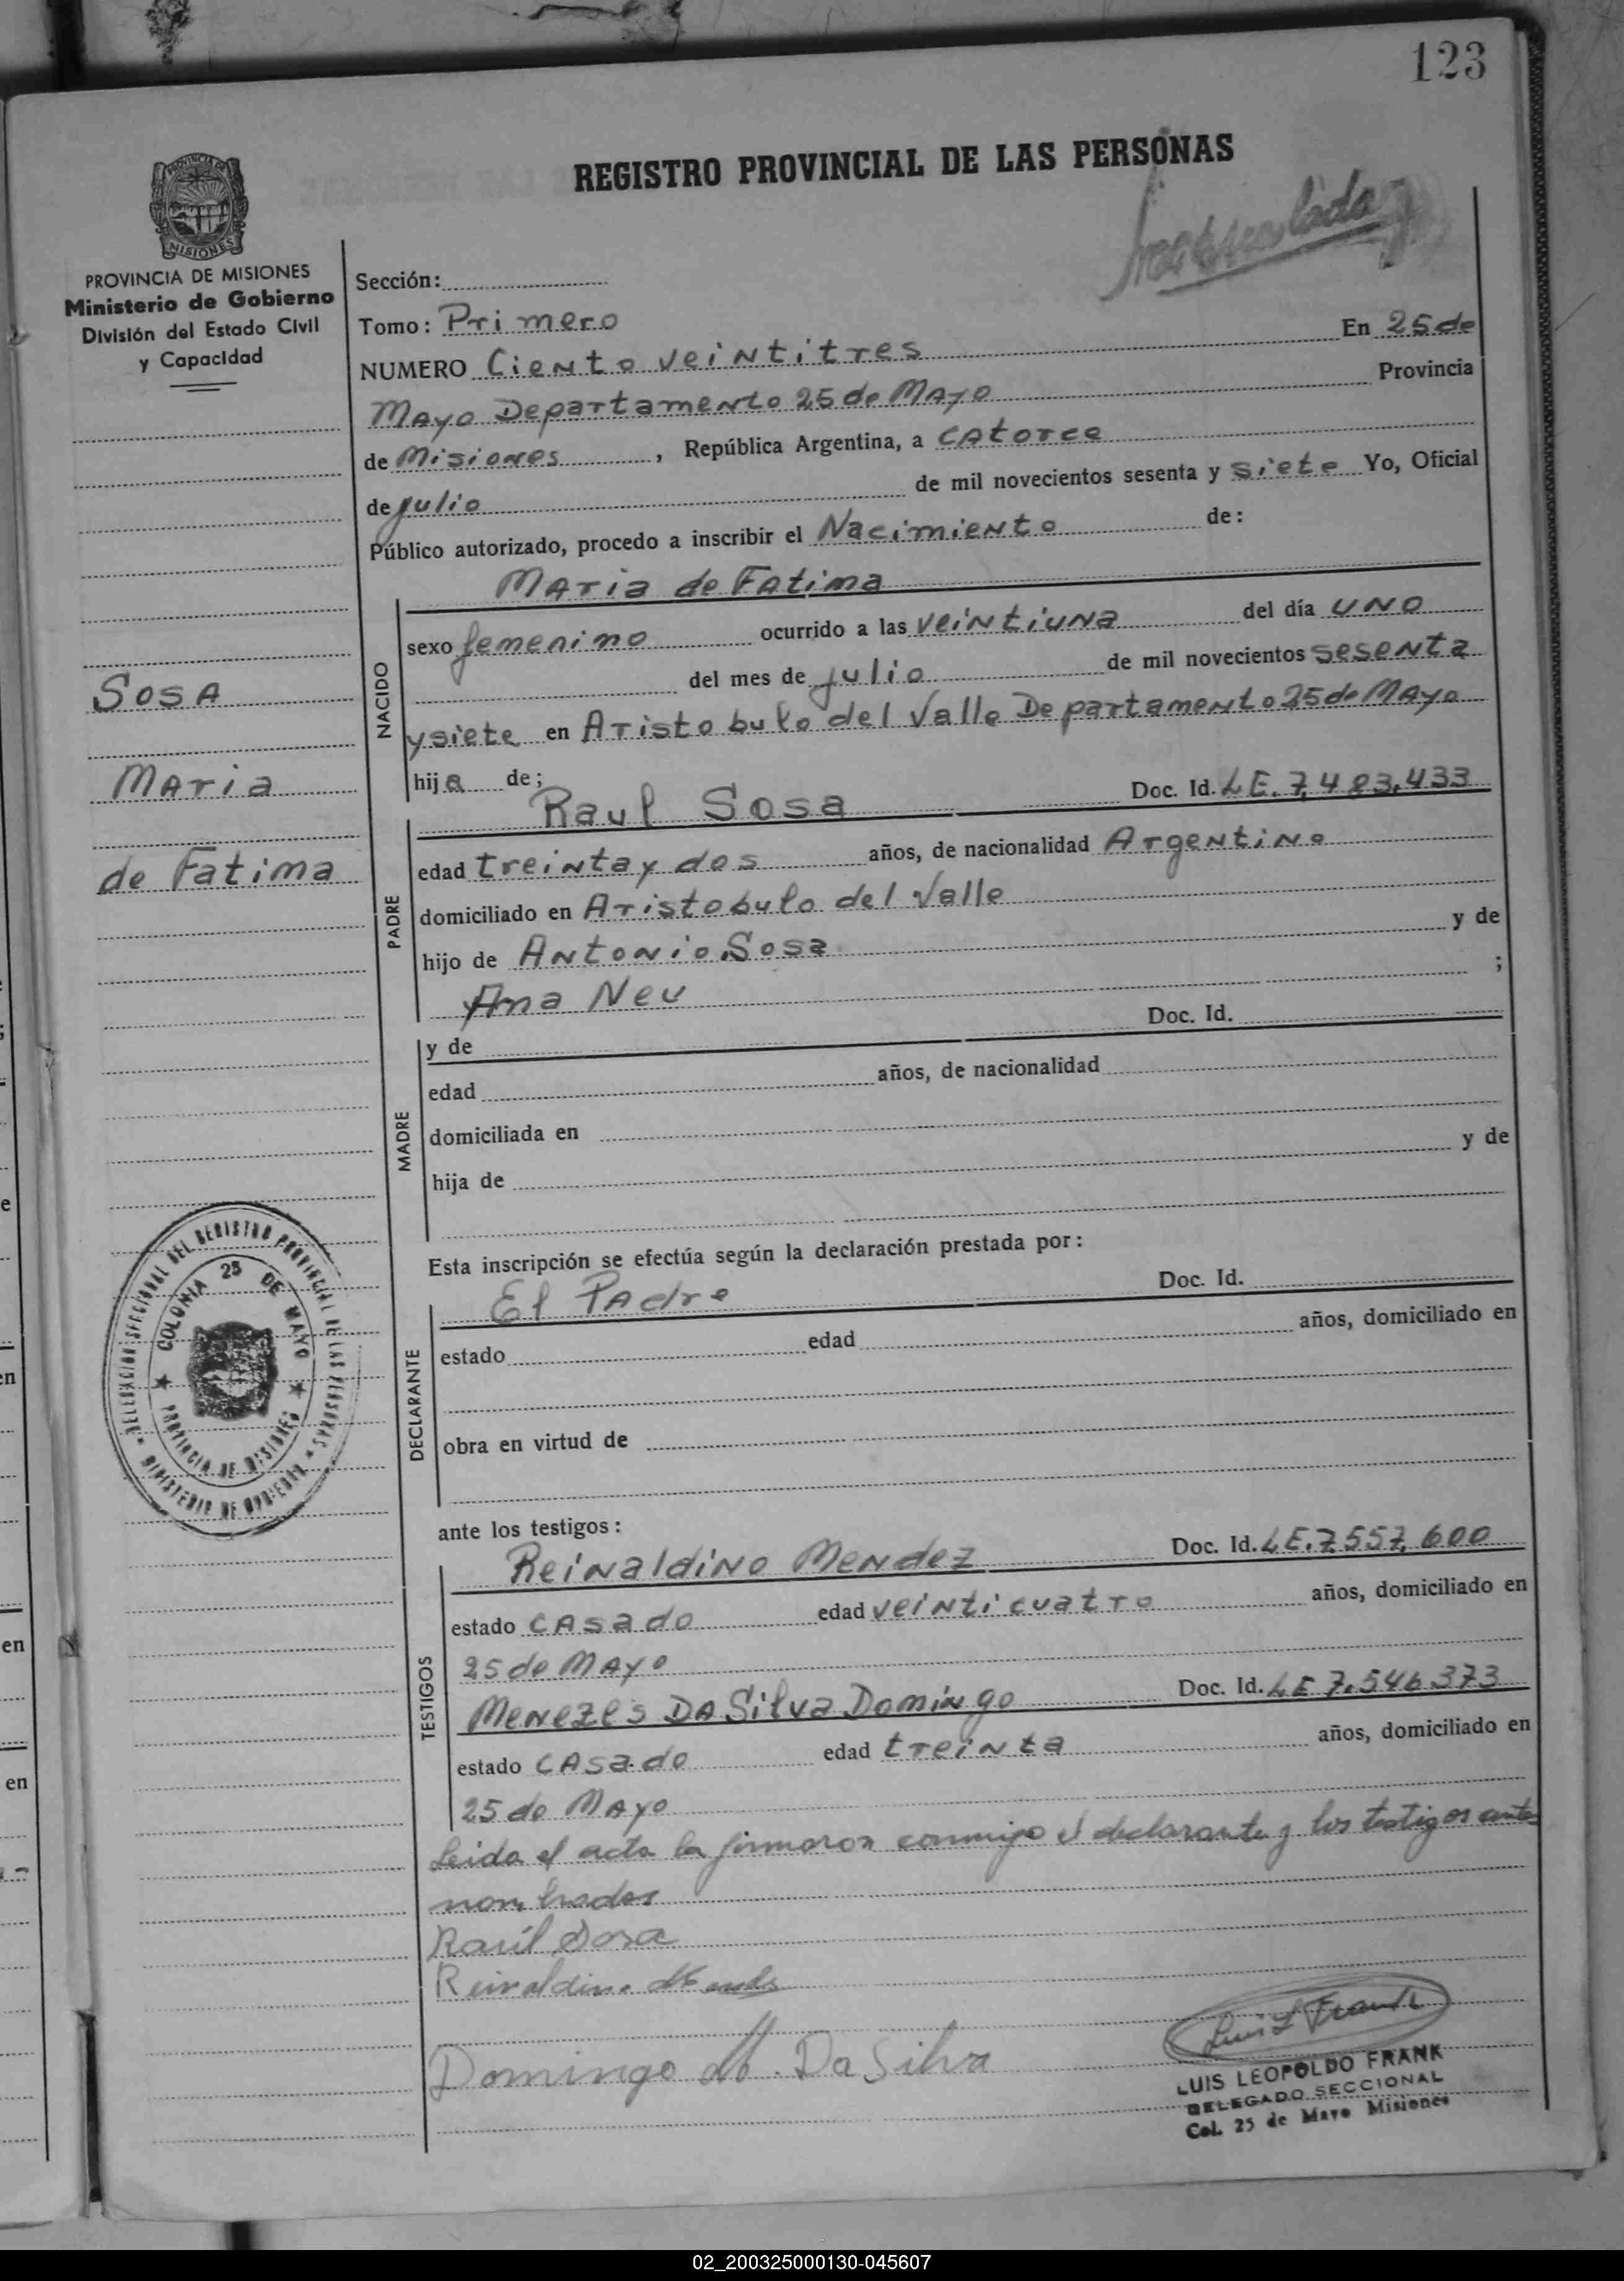 123
REGISTRO PROVINCIAL DE LAS PERSONAS
PROVINCIA DE MISIONES
Ministerio de Gobierno
División del Estado Civil
y Capacidad
SOSA
MARia
de Fatima
Sección:
Tomo: Primero
NUMERO Ciento veintitres En 25 de
Mayo Departamento 25 de Mayo Provincia
de Misiones, República Argentina, a catorce
de julio de mil novecientos sesenta y siete Yo, Oficial
Público autorizado, procedo a inscribir el Nacimiento de:
NACIDO
Maria de Fatima
sexo femenino ocurrido a las veintiuna del día uno
del mes de julio de mil novecientos sesenta
y siete en Aristobulo del Valle Departamento 25 de Mayo
hija de;
PADRE
Raul Sosa Doc. Id. LE. 7,483,433
edad treinta y dos años, de nacionalidad Argentino
domiciliado en Aristobulo del Valle
hijo de Antonio Sosa y de
Ana Neu ;
MADRE
y de Doc. Id.
edad años, de nacionalidad
domiciliada en
hija de y de
Esta inscripción se efectúa según la declaración prestada por:
DECLARANTE
El Padre Doc. Id.
estado edad años, domiciliado en
obra en virtud de
DELEGACION SECCIONAL DEL REGISTRO PROVINCIAL DE LAS PERSONAS
MINISTERIO DE GOBIERNO
COLONIA 25 DE MAYO
PROVINCIA DE MISIONES
ante los testigos:
TESTIGOS
Reinaldino Mendez Doc. Id. LE. 7.557,600
estado casado edad veinticuatro años, domiciliado en
25 de Mayo
Menezes Da Silva Domingo Doc. Id. LE 7.546.373
estado casado edad treinta años, domiciliado en
25 de Mayo
Leida el acta la firmaron conmigo el declarante y los testigos antes
nombrados
Raúl Sosa
Reinaldino
Domingo M. Da Silva
Luis L Frank
LUIS LEOPOLDO FRANK
DELEGADO SECCIONAL
Col. 25 de Mayo Misiones
02_200325000130-045607